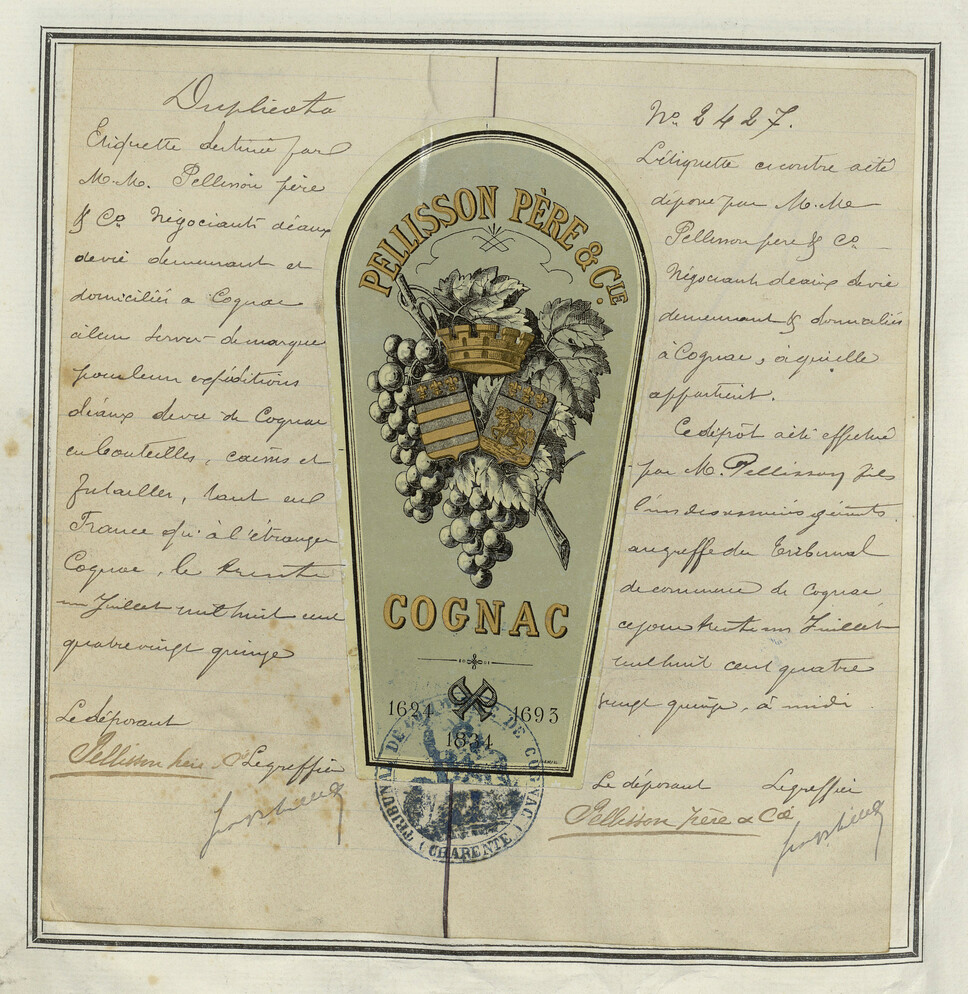 Duplicata
Etiquette destinée par
M.M. Pellisson père
& Co Négociants d'eaux
de vie demeurant et
domiciliés a Cognac
à leur servir de marque
pour leurs expéditions
d'eaux de vie de Cognac
en bouteilles, caisses et
futailles, tant en
France qu'à l'étranger
Cognac, le trente
un Juillet mil huit cent
quatre vingt quinze
Le déposant
Pellisson père & Cie Le greffier
PELLISSON PÈRE & CIE.
COGNAC
1694 1693
1834
TRIBUNAL DE COMMERCE DE COGNAC
(CHARENTE)
No. 2427.
L'étiquette ci contre a été
déposée par M.M.
Pellisson père & Co
Négociants d'eaux de vie
demeurant & domiciliés
à Cognac, à qui elle
appartient.
Ce dépôt a été effectué
par M. Pellisson fils
l'un des associés gérants
au greffe du Tribunal
de commerce de Cognac
ce jour trente un Juillet
mil huit cent quatre
vingt quinze, à midi
Le déposant Le greffier
Pellisson père & Cie